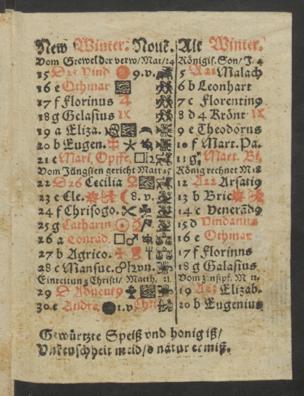 New Winter. Nouē. Alt Winter.
Vom Grewel der verw/Mat/24 Königis. Son/J. 4
15 D 25 Vind 9.v. 5 A 21 Malach
16 e Othmar 6 b Leonhart
17 f Florinus 7 c Florentin9
18 g Gelasius 8 d 4 Krönt
19 a Eliza. 9 e Theodorus
20 b Eugen. 10 f Mart. Pa.
21 c Mari. Opffe. 11 g Mart. Bi.
Vom Jüngsten gericht Mat 25 König rechnet M 18
22 D 26 Cecilia 12 A 22 Arsati9
23 e Cle. 8.v. 13 b Bric
24 f Chrisogo. 14 c Venerād9
25 g Catharin 15 d
26 a Conrad. 16 e Othmar
27 b Agrico. 17 f Florinus
28 c Mansue. vn. 18 g Galasius
Einreitung Christi/ Matth. 21
29 D Advent 19 A 23 Elizab.
30 e Andre 1.v. 20 b Eugenius
Gewürtzte Speiß vnd honig iß/
Vnkeuschheit meid/d natur ermiß.